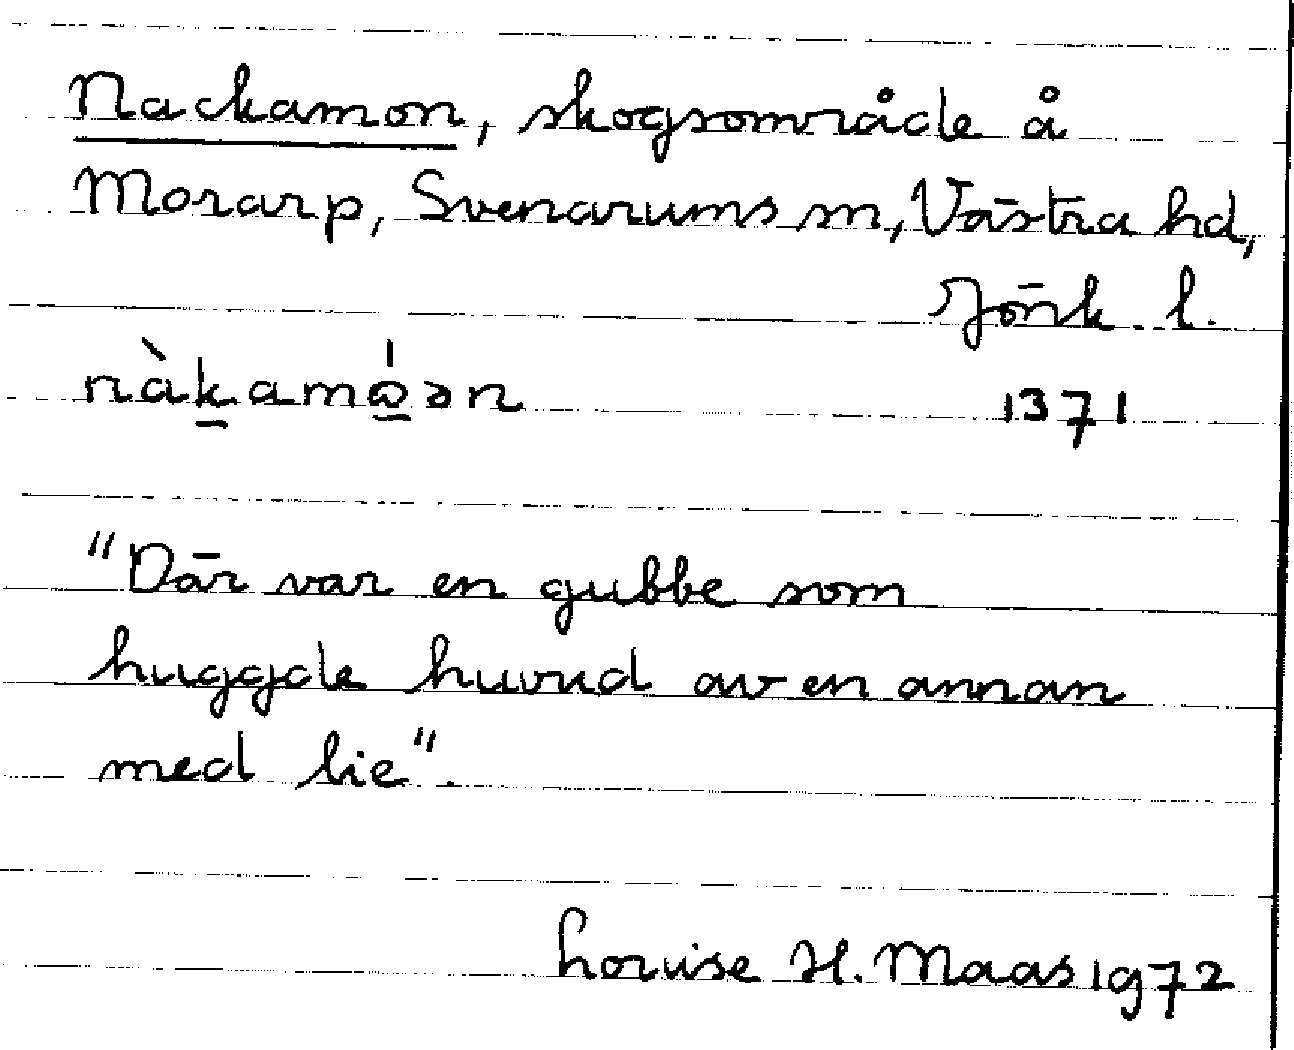 Nackamon, skogsområde å
Morarp, Svenarums sn, Västra hd,
Jönk. l.
nàkamω̇ən 1371
"Där var en gubbe som
huggde huvud av en annan
med lie".
Louise H. Maas 1972